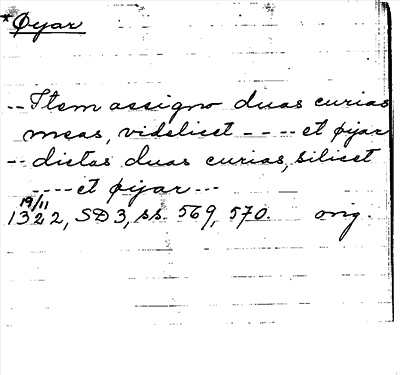 *Øyar
-- Item assigno duas curias
meas, videlicet ---- et øyar
-- dictas duas curias, silicet
---- et øyar ---
19/11
1322, SD 3, ss. 569, 570. orig.